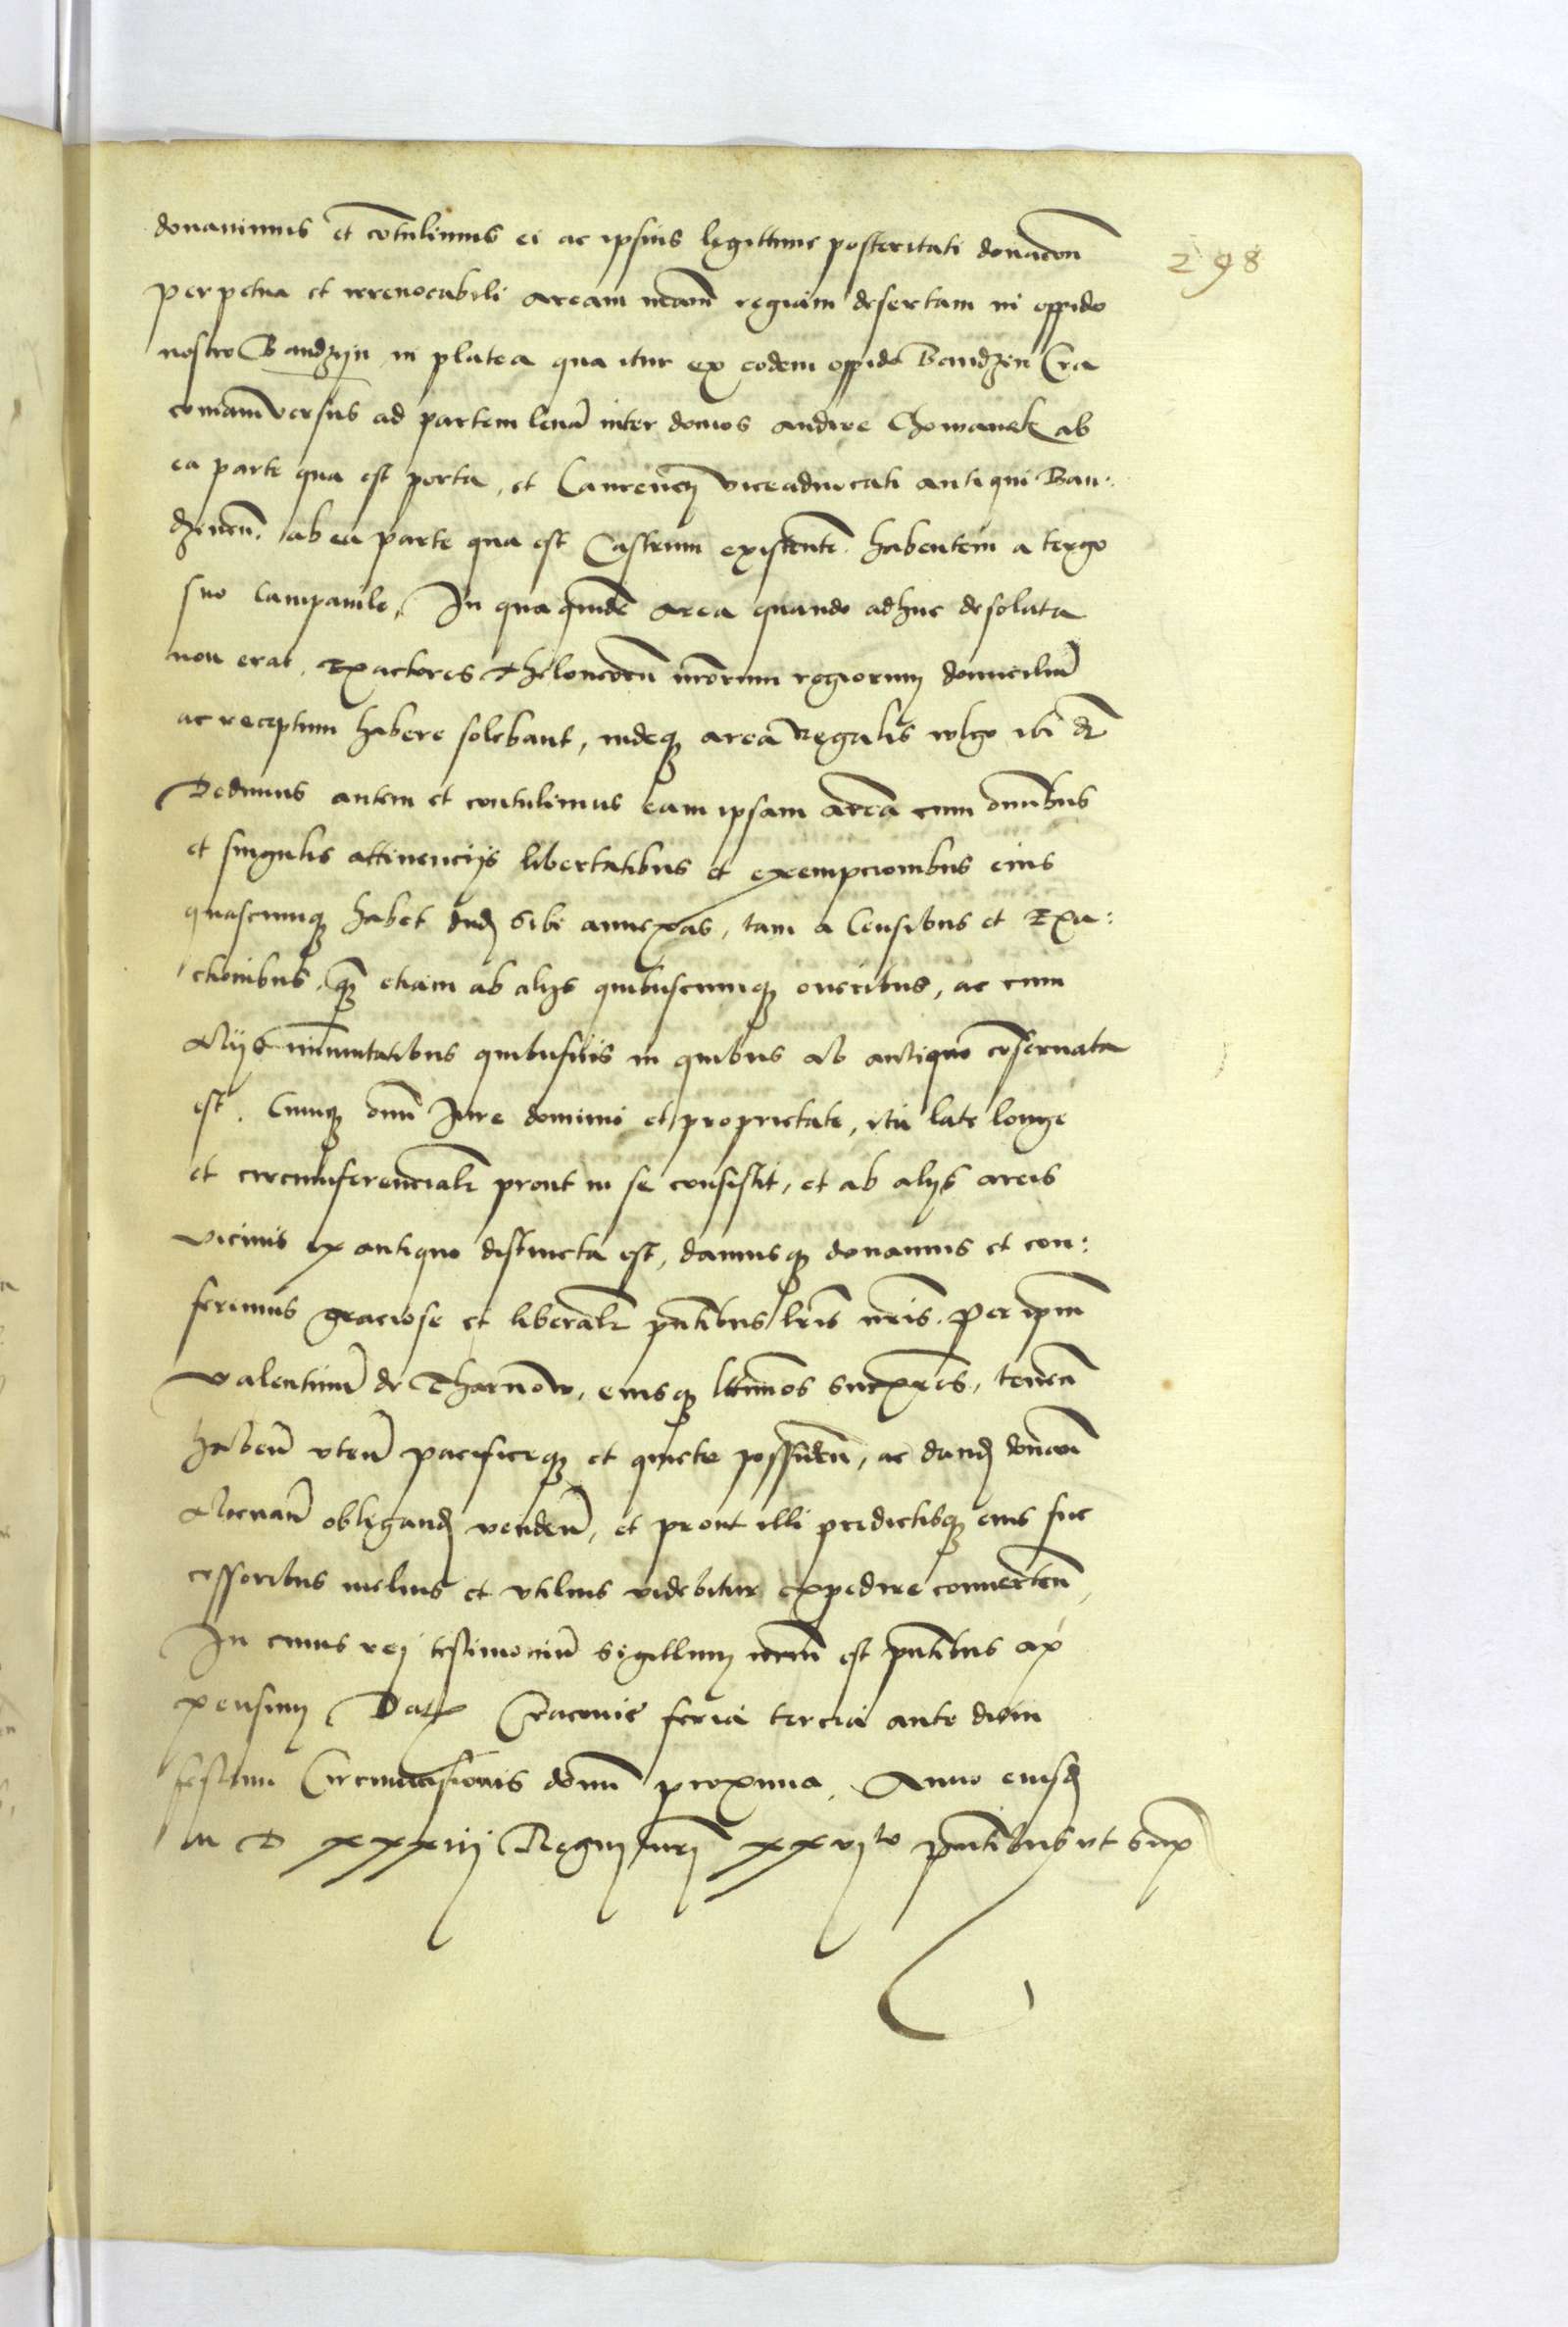 donavimus et cõtulimus ei ac ipsius legittime posteritati donacõn
298
perpetua et irrevocabili aream nr̃am regiam desertam in oppido
nostro Bandzyn in platea qua itur ex eodem oppido Bandzin Cra
coviam versus ad partem levã inter domos Andree Chomanek ab
ea parte qua est porta, et Laurencÿ viceadvocati antiqui Ban:
dzineñ. ab ea parte qua est Castrum existentẽ habentem a tergo
suo campanile, In qua quidẽ area quando adhuc desolata
non erat, Exactores theloneorũ nr̃orum regiorum domiciliũ
ac receptum habere solebant, indeq area Regalis wlgo ibi dr̃
Dedimus autem et contulimus eam ipsam areã cum omnibus
et singulis attinencijs libertatibus et exempcionibus eius
quascumq habet dudũ sibi annexas, tam a Censibus et Exa:
ctionibus, q̃ etiam ab alijs quibuscumq oneribus, ac cum
alijs immunitatibus quibusvis in quibus ab antiquo cõservata
est. Cumq omni Jure dominii et proprietate, ita late longe
et circumferencialr̃ prout in se consistit, et ab alijs areis
vicinis ex antiquo distincta est, damusq donamus et con:
ferimus graciose et liberalr̃ pñtibus lr̃is nr̃is. Per ipm̃
Valentinũ de Tharnow, eiusq ltimos succẽres, tenenã
habenũ utenũ pacificeq et quiete possidenũ, ac dandũ donanũ
alienanũ obligandũ vendenũ, et prout illi predictisq eius suc
cessoribus melius et utilius videbitur expedire convertenũ,
In cuius rej testimoniũ sigillum nr̃m est pñtibus ap
pensum Datũ Cracovie feria tercia ante diem
festum Circumcisionis domĩ proxima. Anno eiusdẽ
M D xxxiij Regnj nrj xxvjto pñtibus ut supᷓ